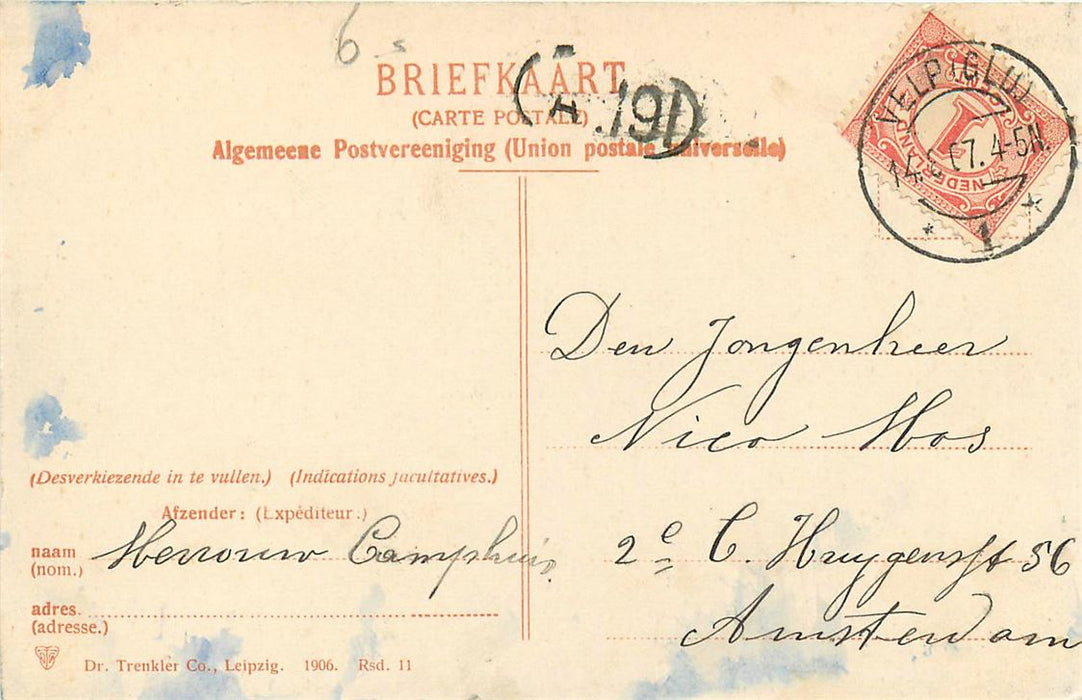 6
BRIEFKAART
(CARTE POSTALE)
Algemeene Postvereeniging (Union postale universelle)
(A 191)
VELP (GLD)
14. 07. 4-5N.
1
NEDERLAND
1
Den Jongenheer
Nico Mos
2e C. Huygensst 56
Amsterdam
(Desverkiezende in te vullen.) (Indications facultatives.)
Afzender: (Expéditeur.)
naam Mevrouw Camphuis
(nom.)
adres
(adresse.)
Dr. Trenkler Co., Leipzig. 1906. Rsd. 11